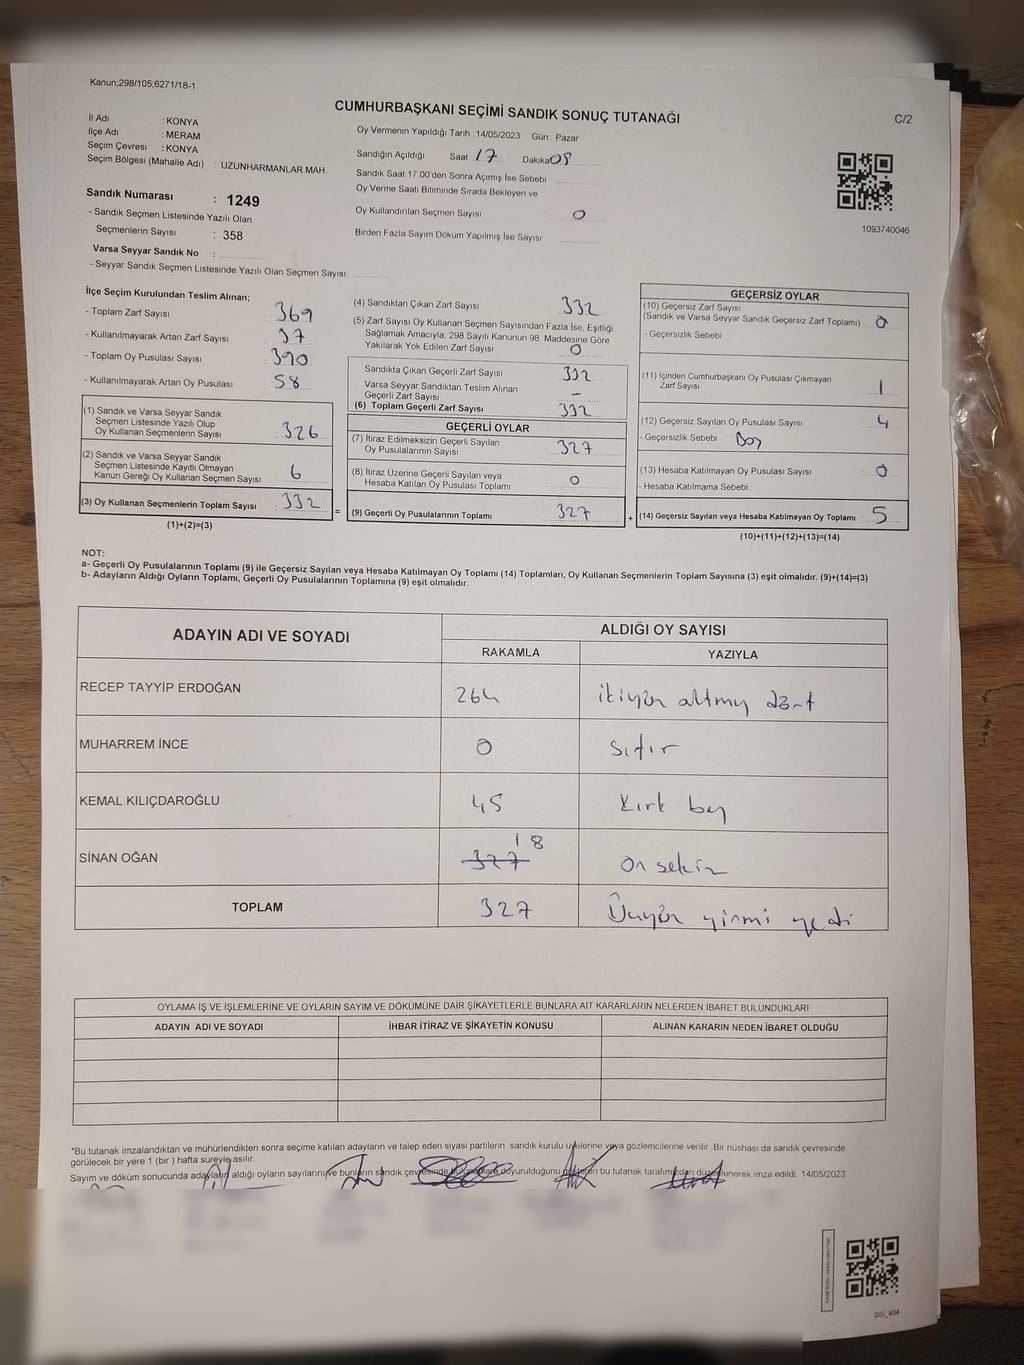 Kanun;298/105;6271/18-1
CUMHURBAŞKANI SEÇİMİ SANDIK SONUÇ TUTANAĞI
C/2
İl Adı : KONYA
İlçe Adı : MERAM
Seçim Çevresi : KONYA
Seçim Bölgesi (Mahalle Adı) : UZUNHARMANLAR MAH.
Sandık Numarası : 1249
- Sandık Seçmen Listesinde Yazılı Olan
Seçmenlerin Sayısı : 358
Varsa Seyyar Sandık No :
- Seyyar Sandık Seçmen Listesinde Yazılı Olan Seçmen Sayısı:
Oy Vermenin Yapıldığı Tarih : 14/05/2023 Gün : Pazar
Sandığın Açıldığı Saat 17 Dakika 08
Sandık Saat 17:00'den Sonra Açımış İse Sebebi
Oy Verme Saati Bitiminde Sırada Bekleyen ve
Oy Kullandırılan Seçmen Sayısı 0
Birden Fazla Sayım Döküm Yapılmış İse Sayısı
1093740046
İlçe Seçim Kurulundan Teslim Alınan;
- Toplam Zarf Sayısı : 369
- Kullanılmayarak Artan Zarf Sayısı : 37
- Toplam Oy Pusulası Sayısı : 390
- Kullanılmayarak Artan Oy Pusulası : 58
(1) Sandık ve Varsa Seyyar Sandık
Seçmen Listesinde Yazılı Olup
Oy Kullanan Seçmenlerin Sayısı : 326
(2) Sandık ve Varsa Seyyar Sandık
Seçmen Listesinde Kayıtlı Olmayan
Kanun Gereği Oy Kullanan Seçmen Sayısı : 6
(3) Oy Kullanan Seçmenlerin Toplam Sayısı : 332
(1)+(2)=(3)
=
(4) Sandıktan Çıkan Zarf Sayısı 332
(5) Zarf Sayısı Oy Kullanan Seçmen Sayısından Fazla İse, Eşitliği
Sağlamak Amacıyla; 298 Sayılı Kanunun 98. Maddesine Göre
Yakılarak Yok Edilen Zarf Sayısı 0
Sandıkta Çıkan Geçerli Zarf Sayısı 332
Varsa Seyyar Sandıktan Teslim Alınan
Geçerli Zarf Sayısı -
(6) Toplam Geçerli Zarf Sayısı 332
GEÇERLİ OYLAR
(7) İtiraz Edilmeksizin Geçerli Sayılan
Oy Pusulalarının Sayısı 327
(8) İtiraz Üzerine Geçerli Sayılan veya
Hesaba Katılan Oy Pusulası Toplamı 0
(9) Geçerli Oy Pusulalarının Toplamı 327
+
GEÇERSİZ OYLAR
(10) Geçersiz Zarf Sayısı
(Sandık ve Varsa Seyyar Sandık Geçersiz Zarf Toplamı) 0
- Geçersizlik Sebebi :
(11) İçinden Cumhurbaşkanı Oy Pusulası Çıkmayan
Zarf Sayısı 1
(12) Geçersiz Sayılan Oy Pusulası Sayısı : 4
- Geçersizlik Sebebi : Boş
(13) Hesaba Katılmayan Oy Pusulası Sayısı : 0
- Hesaba Katılmama Sebebi :
(14) Geçersiz Sayılan veya Hesaba Katılmayan Oy Toplamı 5
(10)+(11)+(12)+(13)=(14)
NOT:
a- Geçerli Oy Pusulalarının Toplamı (9) ile Geçersiz Sayılan veya Hesaba Katılmayan Oy Toplamı (14) Toplamları, Oy Kullanan Seçmenlerin Toplam Sayısına (3) eşit olmalıdır. (9)+(14)=(3)
b- Adayların Aldığı Oyların Toplamı, Geçerli Oy Pusulalarının Toplamına (9) eşit olmalıdır.
ADAYIN ADI VE SOYADI
ALDIĞI OY SAYISI
RAKAMLA YAZIYLA
RECEP TAYYİP ERDOĞAN 264 ikiyüz altmış dört
MUHARREM İNCE 0 sıfır
KEMAL KILIÇDAROĞLU 45 Kırk beş
SİNAN OĞAN 327 18 On sekiz
TOPLAM 327 Üçyüz yirmi yedi
OYLAMA İŞ VE İŞLEMLERİNE VE OYLARIN SAYIM VE DÖKÜMÜNE DAİR ŞİKAYETLERLE BUNLARA AİT KARARLARIN NELERDEN İBARET BULUNDUKLARI
ADAYIN ADI VE SOYADI İHBAR İTİRAZ VE ŞİKAYETİN KONUSU ALINAN KARARIN NEDEN İBARET OLDUĞU
*Bu tutanak imzalandıktan ve mühürlendikten sonra seçime katılan adayların ve talep eden siyasi partilerin sandık kurulu üyelerine veya gözlemcilerine verilir. Bir nüshası da sandık çevresinde
görülecek bir yere 1 (bir ) hafta süreyle asılır.
Sayım ve döküm sonucunda adayların aldığı oyların sayılarını ve bunların sandık çevresinde duyurulduğunu bu tutanak tarafımızdan düzenlenerek imza edildi. 14/05/2023
SSİ_404